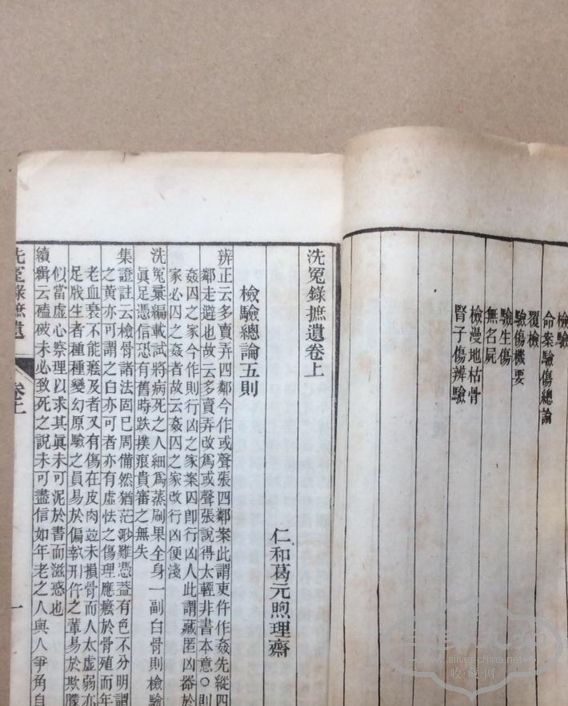 檢驗
命案驗傷總論
覆檢
驗傷機要
驗生傷
無名屍
檢漫地枯骨
腎子傷辨驗
洗冤錄摭遺卷上
仁和葛元煦理齋
檢驗總論五則
辨正云多賣弄四鄰今作或聲張四鄰案此謂東仵作姦先縱四
鄰走遊也故云多賣弄改為或聲張說得太輕非書本意○則
姦囚之家今作則行凶之家案囚即行凶人此謂藏匿凶器於
家必囚之姦者故云姦囚之家改行凶便淺
洗冤彙編載試將病死之人細為蒸刷果全身一副白骨則檢驗
眞足憑信恐有舊時跌撲痕貴審之無失
集證註云檢骨諸法固巳周備然猶茫渺難憑蓋有色不分明謂
之黃亦可謂之白亦可者亦有虛怯之傷理應癥於骨殖而年
老血衰不能癥及者又有傷在皮肉竝未損骨而人太虛弱亦
足戕生者種種變幻原驗之員易於偏執刑仵之輩易於欺朦
似當虛心察理以求其眞未可泥於書而滋惑也
續輯云磕破未必致死之說未可盡信如年老之人與人爭角自
洗冤錄摭遺
卷上
一